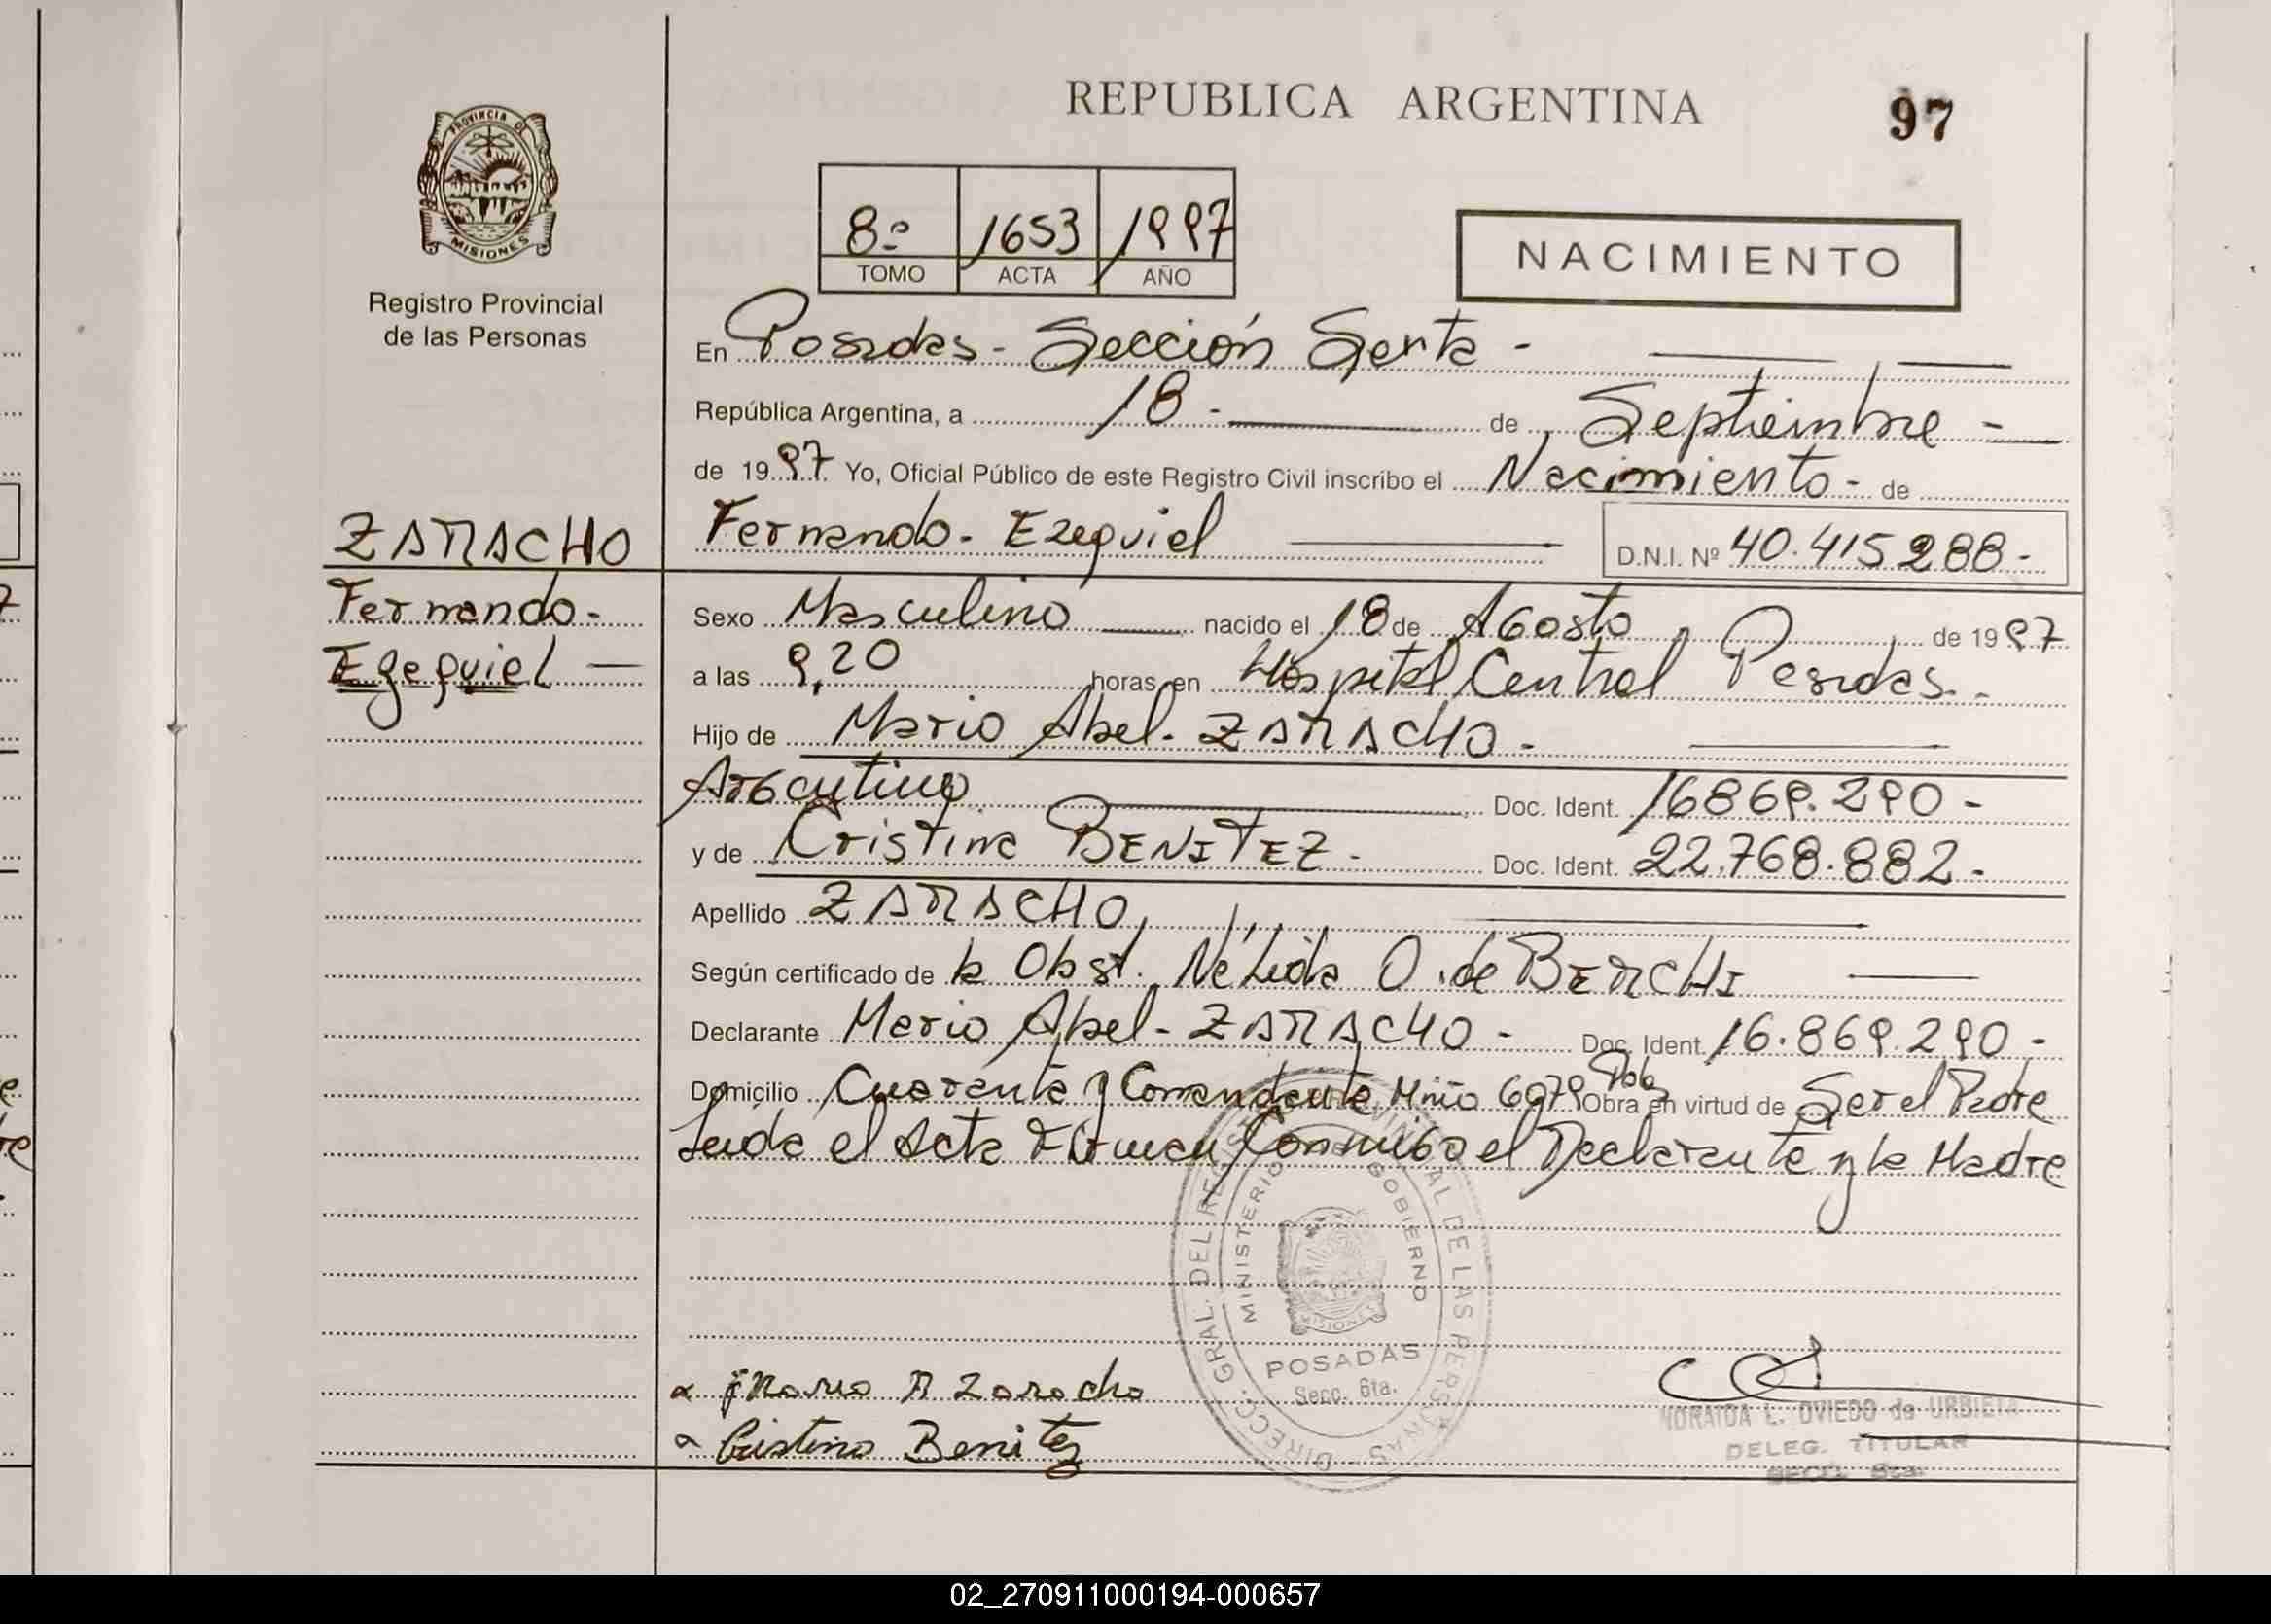 REPUBLICA ARGENTINA
97
PROVINCIA DE
MISIONES
Registro Provincial
de las Personas
8º 1653 1997
TOMO ACTA AÑO
NACIMIENTO
En Posadas - Sección Sexta -
República Argentina, a 18 - de Septiembre -
de 1997 Yo, Oficial Público de este Registro Civil inscribo el Nacimiento - de
ZARACHO
Fernando - Ezequiel
D.N.I. Nº 40.415288 -
Fernando -
Ezequiel -
Sexo Masculino nacido el 18 de Agosto de 1997
a las 9,20 horas en Hospital Central Posadas. -
Hijo de Mario Abel - ZARACHO -
Argentino Doc. Ident. 16869.290 -
y de Cristina BENITEZ - Doc. Ident. 22.768.882 -
Apellido ZARACHO
Según certificado de la Obst. Nélida O. de BERCHI
Declarante Mario Abel - ZARACHO - Doc. Ident. 16.869.290 -
Domicilio Cuarenta y Comandante Miño 6979 Pdas Obra en virtud de Ser el Padre
Leida el Acta Firman Conmigo el Declarante y la Madre
DIRECC. GRAL. DEL REGISTRO PROVINCIAL DE LAS PERSONAS
MINISTERIO DE GOBIERNO
MISIONES
POSADAS
Secc. 6ta.
Mario A Zaracho
Cristina Benitez
NORAIDA L. OVIEDO de URBIETA
DELEG. TITULAR
SECC. 6ta.
02_270911000194-000657